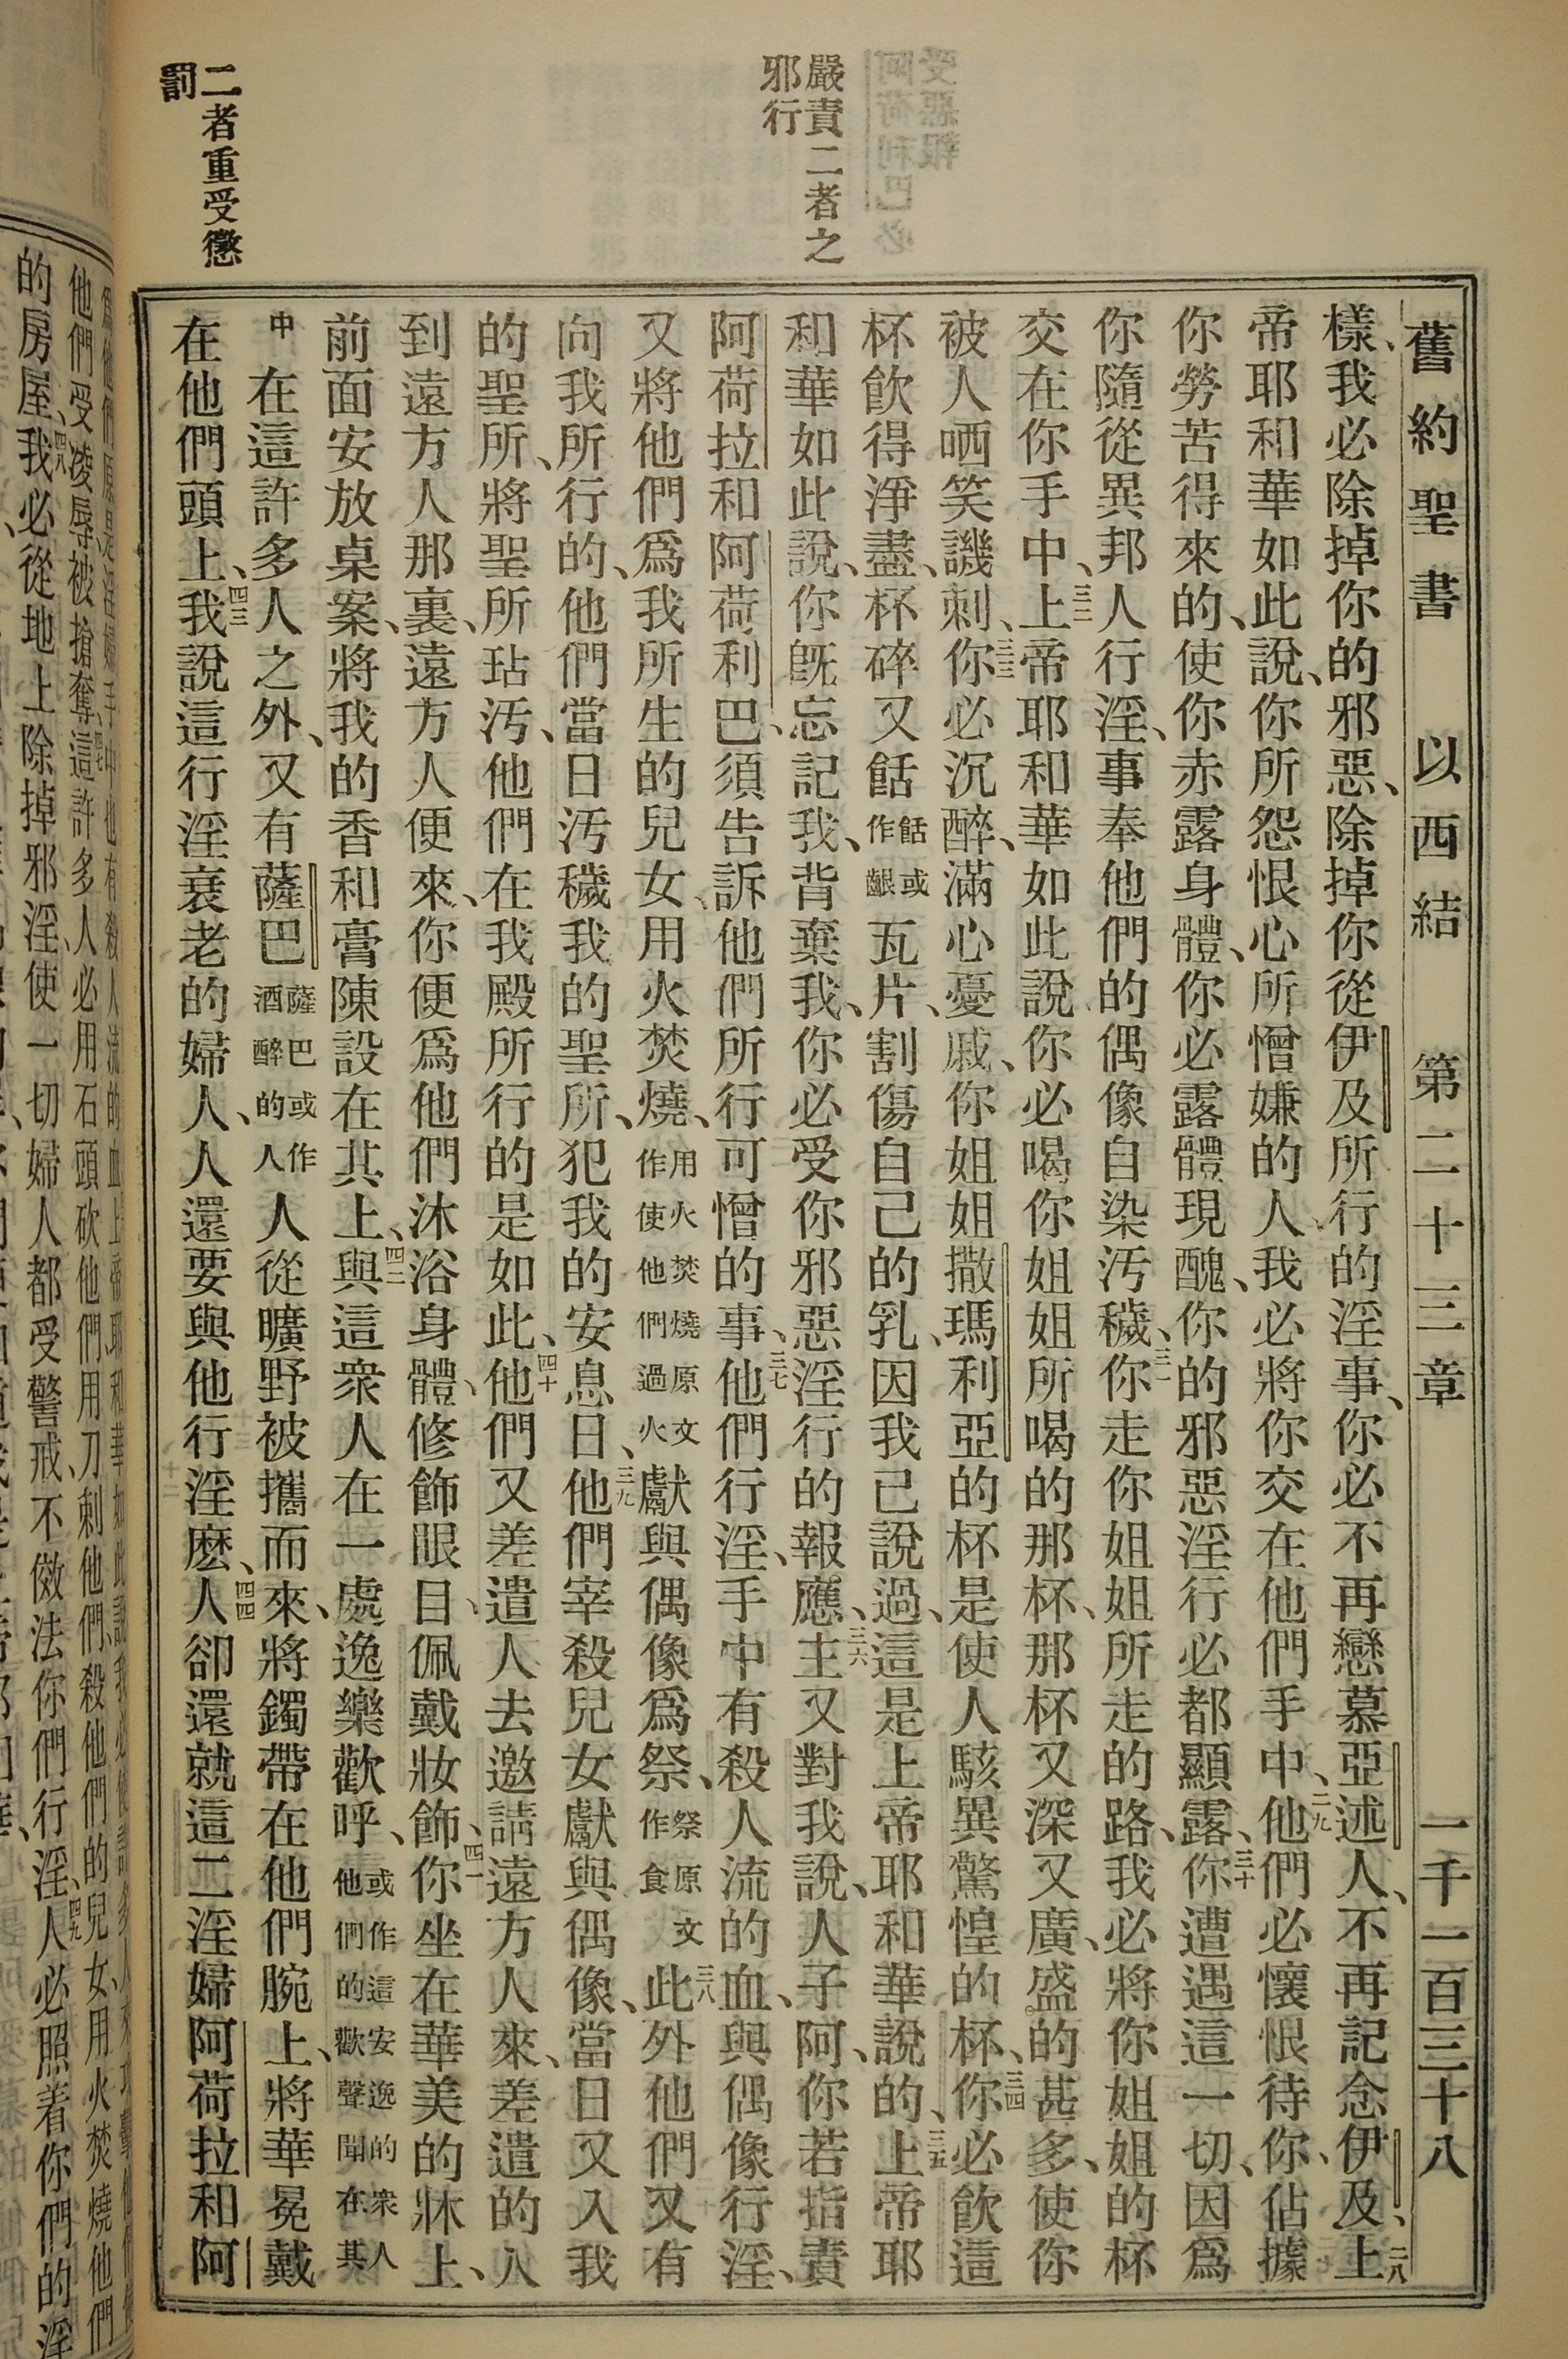 舊約聖書 以西結 第二十三章 一千一百三十八
嚴責二者之
邪行
二者重受懲
罰
樣、我必除掉你的邪惡、除掉你從伊及所行的淫事、你必不再戀慕亞述人、不再記念伊及、二八上
帝耶和華如此說、你所怨恨心所憎嫌的人、我必將你交在他們手中、二九他們必懷恨待你、佔據
你勞苦得來的、使你赤露身體、你必露體現醜、你的邪惡淫行必都顯露、三十你遭遇這一切、因爲
你隨從異邦人行淫、事奉他們的偶像自染汚穢、三一你走你姐姐所走的路、我必將你姐姐的杯
交在你手中、三二上帝耶和華如此說、你必喝你姐姐所喝的那杯、那杯又深又廣、盛的甚多、使你
被人哂笑譏刺、三三你必沉醉、滿心憂戚、你姐姐撒瑪利亞的杯、是使人駭異驚惶的杯、三四你必飲這
杯飲得淨盡、杯碎又餂餂或作齦瓦片、割傷自己的乳、因我已說過、這是上帝耶和華說的、三五上帝耶
和華如此說、你旣忘記我、背棄我、你必受你邪惡淫行的報應、三六主又對我說、人子阿、你若指責
阿荷拉和阿荷利巴、須告訴他們所行可憎的事、三七他們行淫、手中有殺人流的血、與偶像行淫、
又將他們爲我所生的兒女、用火焚燒、用火焚燒原文作使他們過火獻與偶像爲祭、祭原文作食三八此外他們又有
向我所行的、他們當日汚穢我的聖所、犯我的安息日、三九他們宰殺兒女獻與偶像、當日又入我
的聖所、將聖所玷汚、他們在我殿所行的是如此、四十他們又差遣人去邀請遠方人來、差遣的人
到遠方人那裏、遠方人便來、你便爲他們沐浴身體、修飾眼目、佩戴妝飾、四一你坐在華美的牀上、
前面安放桌案、將我的香和膏陳設在其上、四二與這衆人在一處逸樂歡呼、或作這安逸的衆人他們的歡聲聞在其
中 在這許多人之外、又有薩巴薩巴或作酒醉的人人從曠野被攜而來、將鐲帶在他們腕上、將華冕戴
在他們頭上、四三我說這行淫衰老的婦人、人還要與他行淫麽、四四人卻還就這二淫婦阿荷拉和阿
他們受凌辱、被搶奪、四七這許多人必用石頭砍他們、用刀刺他們、殺他們的兒女、用火焚燒他們
的房屋、四八我必從地上除掉邪淫、使一切婦人都受警戒、不傚法你們行淫、四九人必照着你們的淫